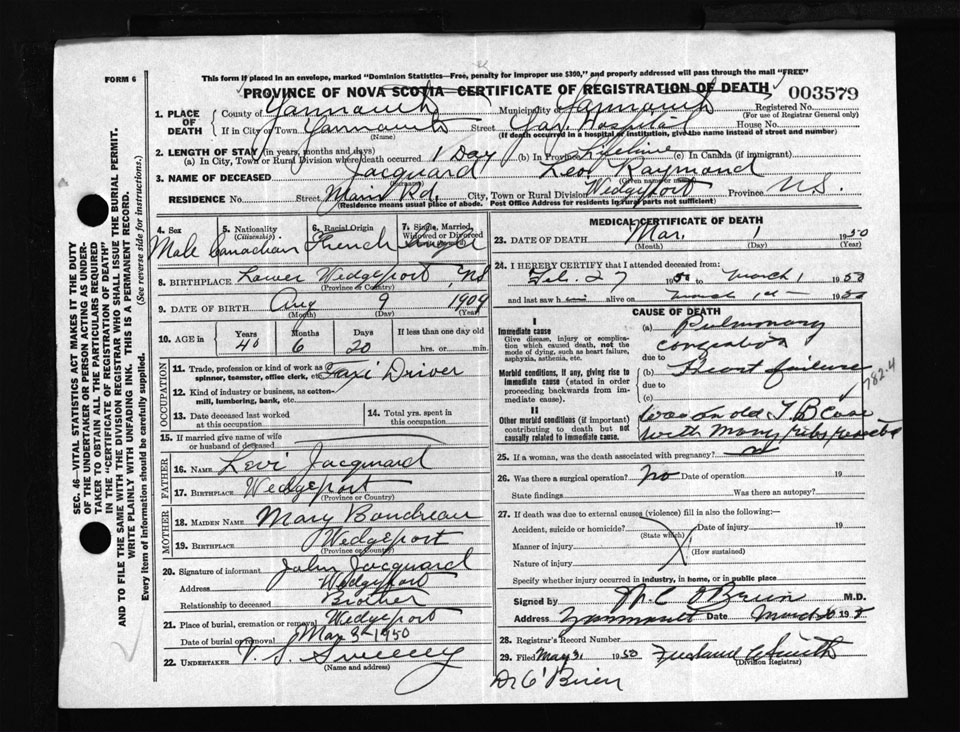 This form if placed in an envelope, marked "Dominion Statistics—Free, penalty for improper use $300," and properly addressed will pass through the mail "FREE"
FORM 6
PROVINCE OF NOVA SCOTIA—CERTIFICATE OF REGISTRATION OF DEATH 003579
1. PLACE OF DEATH County of Yarmouth Municipality of Yarmouth Registered No.
(For use of Registrar General only)
If in City or Town Yarmouth Street Yar. Hospital House No.
(Name) (If death occurred in a hospital or institution, give the name instead of street and number)
2. LENGTH OF STAY (in years, months and days)
(a) In City, Town or Rural Division where death occurred 1 Day (b) In Province Lifetime (c) In Canada (if immigrant)
3. NAME OF DECEASED Jacquard Leo Raymond
(Surname) (Given name or names)
RESIDENCE No. Street Main Rd. City, Town or Rural Division Wedgeport Province N.S.
(Residence means usual place of abode. Post Office Address for residents in rural parts not sufficient)
4. Sex 5. Nationality (Citizenship) 6. Racial Origin 7. Single, Married, Widowed or Divorced
Male Canadian French Single
8. BIRTHPLACE Lower Wedgeport, NS
(Province or Country)
9. DATE OF BIRTH Aug 9 1909
(Month) (Day) (Year)
10. AGE in Years Months Days If less than one day old
40 6 20 hrs. or min.
OCCUPATION
11. Trade, profession or kind of work as spinner, teamster, office clerk, etc. Taxi Driver
12. Kind of industry or business, as cotton-mill, lumbering, bank, etc.
13. Date deceased last worked at this occupation
14. Total yrs. spent in this occupation
15. If married give name of wife or husband of deceased
FATHER
16. NAME Levi Jacquard
17. BIRTHPLACE Wedgeport
(Province or Country)
MOTHER
18. MAIDEN NAME Mary Boudreau
19. BIRTHPLACE Wedgeport
(Province or Country)
20. Signature of informant John Jacquard
Address Wedgeport
Relationship to deceased Brother
21. Place of burial, cremation or removal Wedgeport
Date of burial or removal Mar 3rd 1950
22. UNDERTAKER V. S. Sweeny
(Name and address)
MEDICAL CERTIFICATE OF DEATH
23. DATE OF DEATH Mar. 1 1950
(Month) (Day) (Year)
24. I HEREBY CERTIFY that I attended deceased from:
Feb. 27 1950 to March 1 1950
and last saw him alive on March 1st 1950
CAUSE OF DEATH
I
Immediate cause
Give disease, injury or complication which caused death, not the mode of dying, such as heart failure, asphyxia, asthenia, etc.
(a) Pulmonary
congestion
due to
Morbid conditions, if any, giving rise to immediate cause (stated in order proceeding backwards from immediate).
(b) Heart failure
due to
(c)
782.4
II
Other morbid conditions (if important) contributing to death but not causally related to immediate cause.
Was an old T B Case
with many ribs
25. If a woman, was the death associated with pregnancy?
26. Was there a surgical operation? No Date of operation 19
State findings Was there an autopsy?
27. If death was due to external causes (violence) fill in also the following:—
Accident, suicide or homicide? Date of injury 19
(State which)
Manner of injury
(How sustained)
Nature of injury
Specify whether injury occurred in industry, in home, or in public place
Signed by M. C. O'Brien M.D.
Address Yarmouth Date March
28. Registrar's Record Number
29. Filed 1950
(Division Registrar)
Dr O'Brien
SEC. 46—VITAL STATISTICS ACT MAKES IT THE DUTY
OF THE UNDERTAKER OR PERSON ACTING AS UNDER-
TAKER TO OBTAIN ALL THE PARTICULARS REQUIRED
IN THE "CERTIFICATE OF REGISTRATION OF DEATH"
AND TO FILE THE SAME WITH THE DIVISION REGISTRAR WHO SHALL ISSUE THE BURIAL PERMIT.
WRITE PLAINLY WITH UNFADING INK. THIS IS A PERMANENT RECORD.
Every item of information should be carefully supplied. (See reverse side for instructions.)